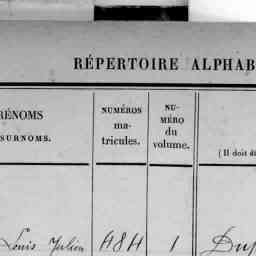 RÉPERTOIRE ALPHAB
RÉNOMS
SURNOMS.
NUMÉROS
ma-
tricules.
NU-
MÉRO
du
volume.
(Il doit ê
Louis Julien 484 1 Dup